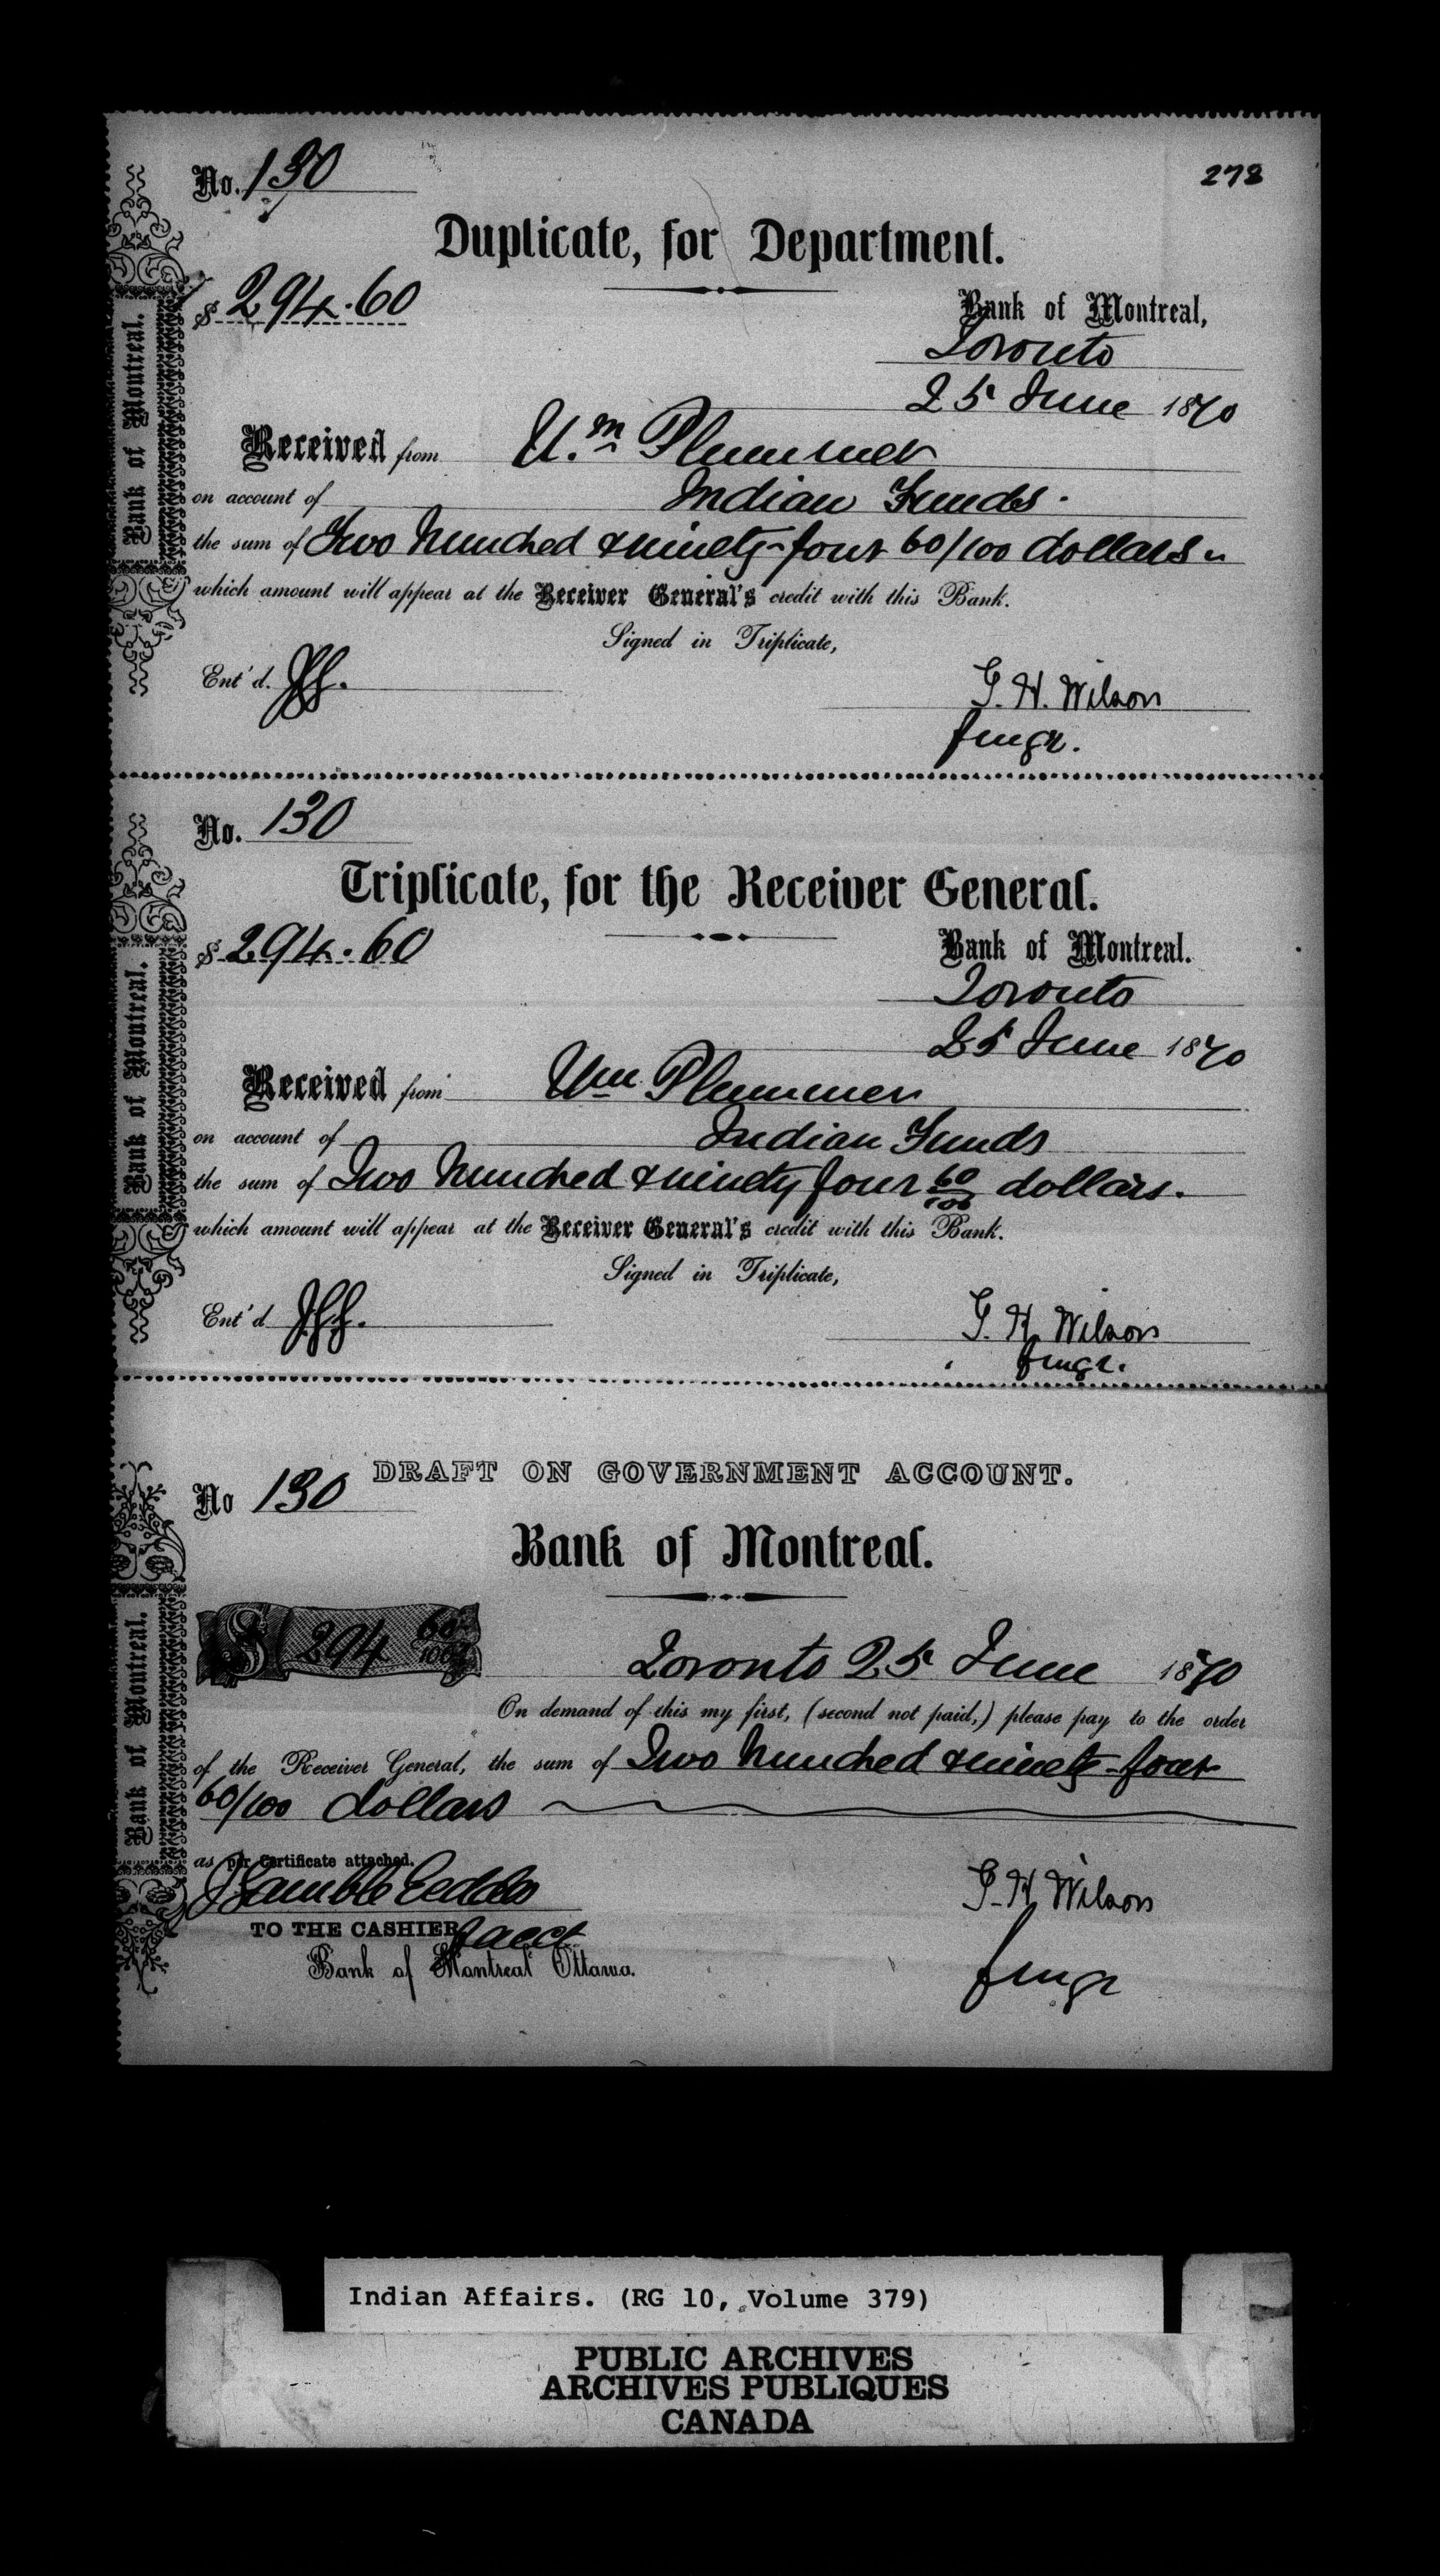 No. 130
278
Duplicate, for Department.
$ 294.60
Bank of Montreal,
Toronto
25 June 1870
Received from Wm Plummer
on account of Indian Funds.
the sum of Two hundred & ninety-four 60/100 dollars
which amount will appear at the Receiver General's credit with this Bank.
Signed in Triplicate,
Ent'd.
G. H. Wilson
Bank of Montreal.
No. 130
Triplicate, for the Receiver General.
$ 294.60
Bank of Montreal.
Toronto
25 June 1870
Received from Wm Plummer
on account of Indian Funds
the sum of Two hundred & ninety four 60/100 dollars.
which amount will appear at the Receiver General's credit with this Bank.
Signed in Triplicate,
Ent'd
G. H. Wilson
Bank of Montreal.
DRAFT ON GOVERNMENT ACCOUNT.
No 130
Bank of Montreal.
$ 294 60/100
Toronto 25 June 1870
On demand of this my first, (second not paid,) please pay to the order
of the Receiver General, the sum of Two hundred & ninety-four
60/100 dollars
as per Certificate attached.
G. H. Wilson
TO THE CASHIER
Bank of Montreal Ottawa.
Bank of Montreal.
Indian Affairs. (RG 10, Volume 379)
PUBLIC ARCHIVES
ARCHIVES PUBLIQUES
CANADA